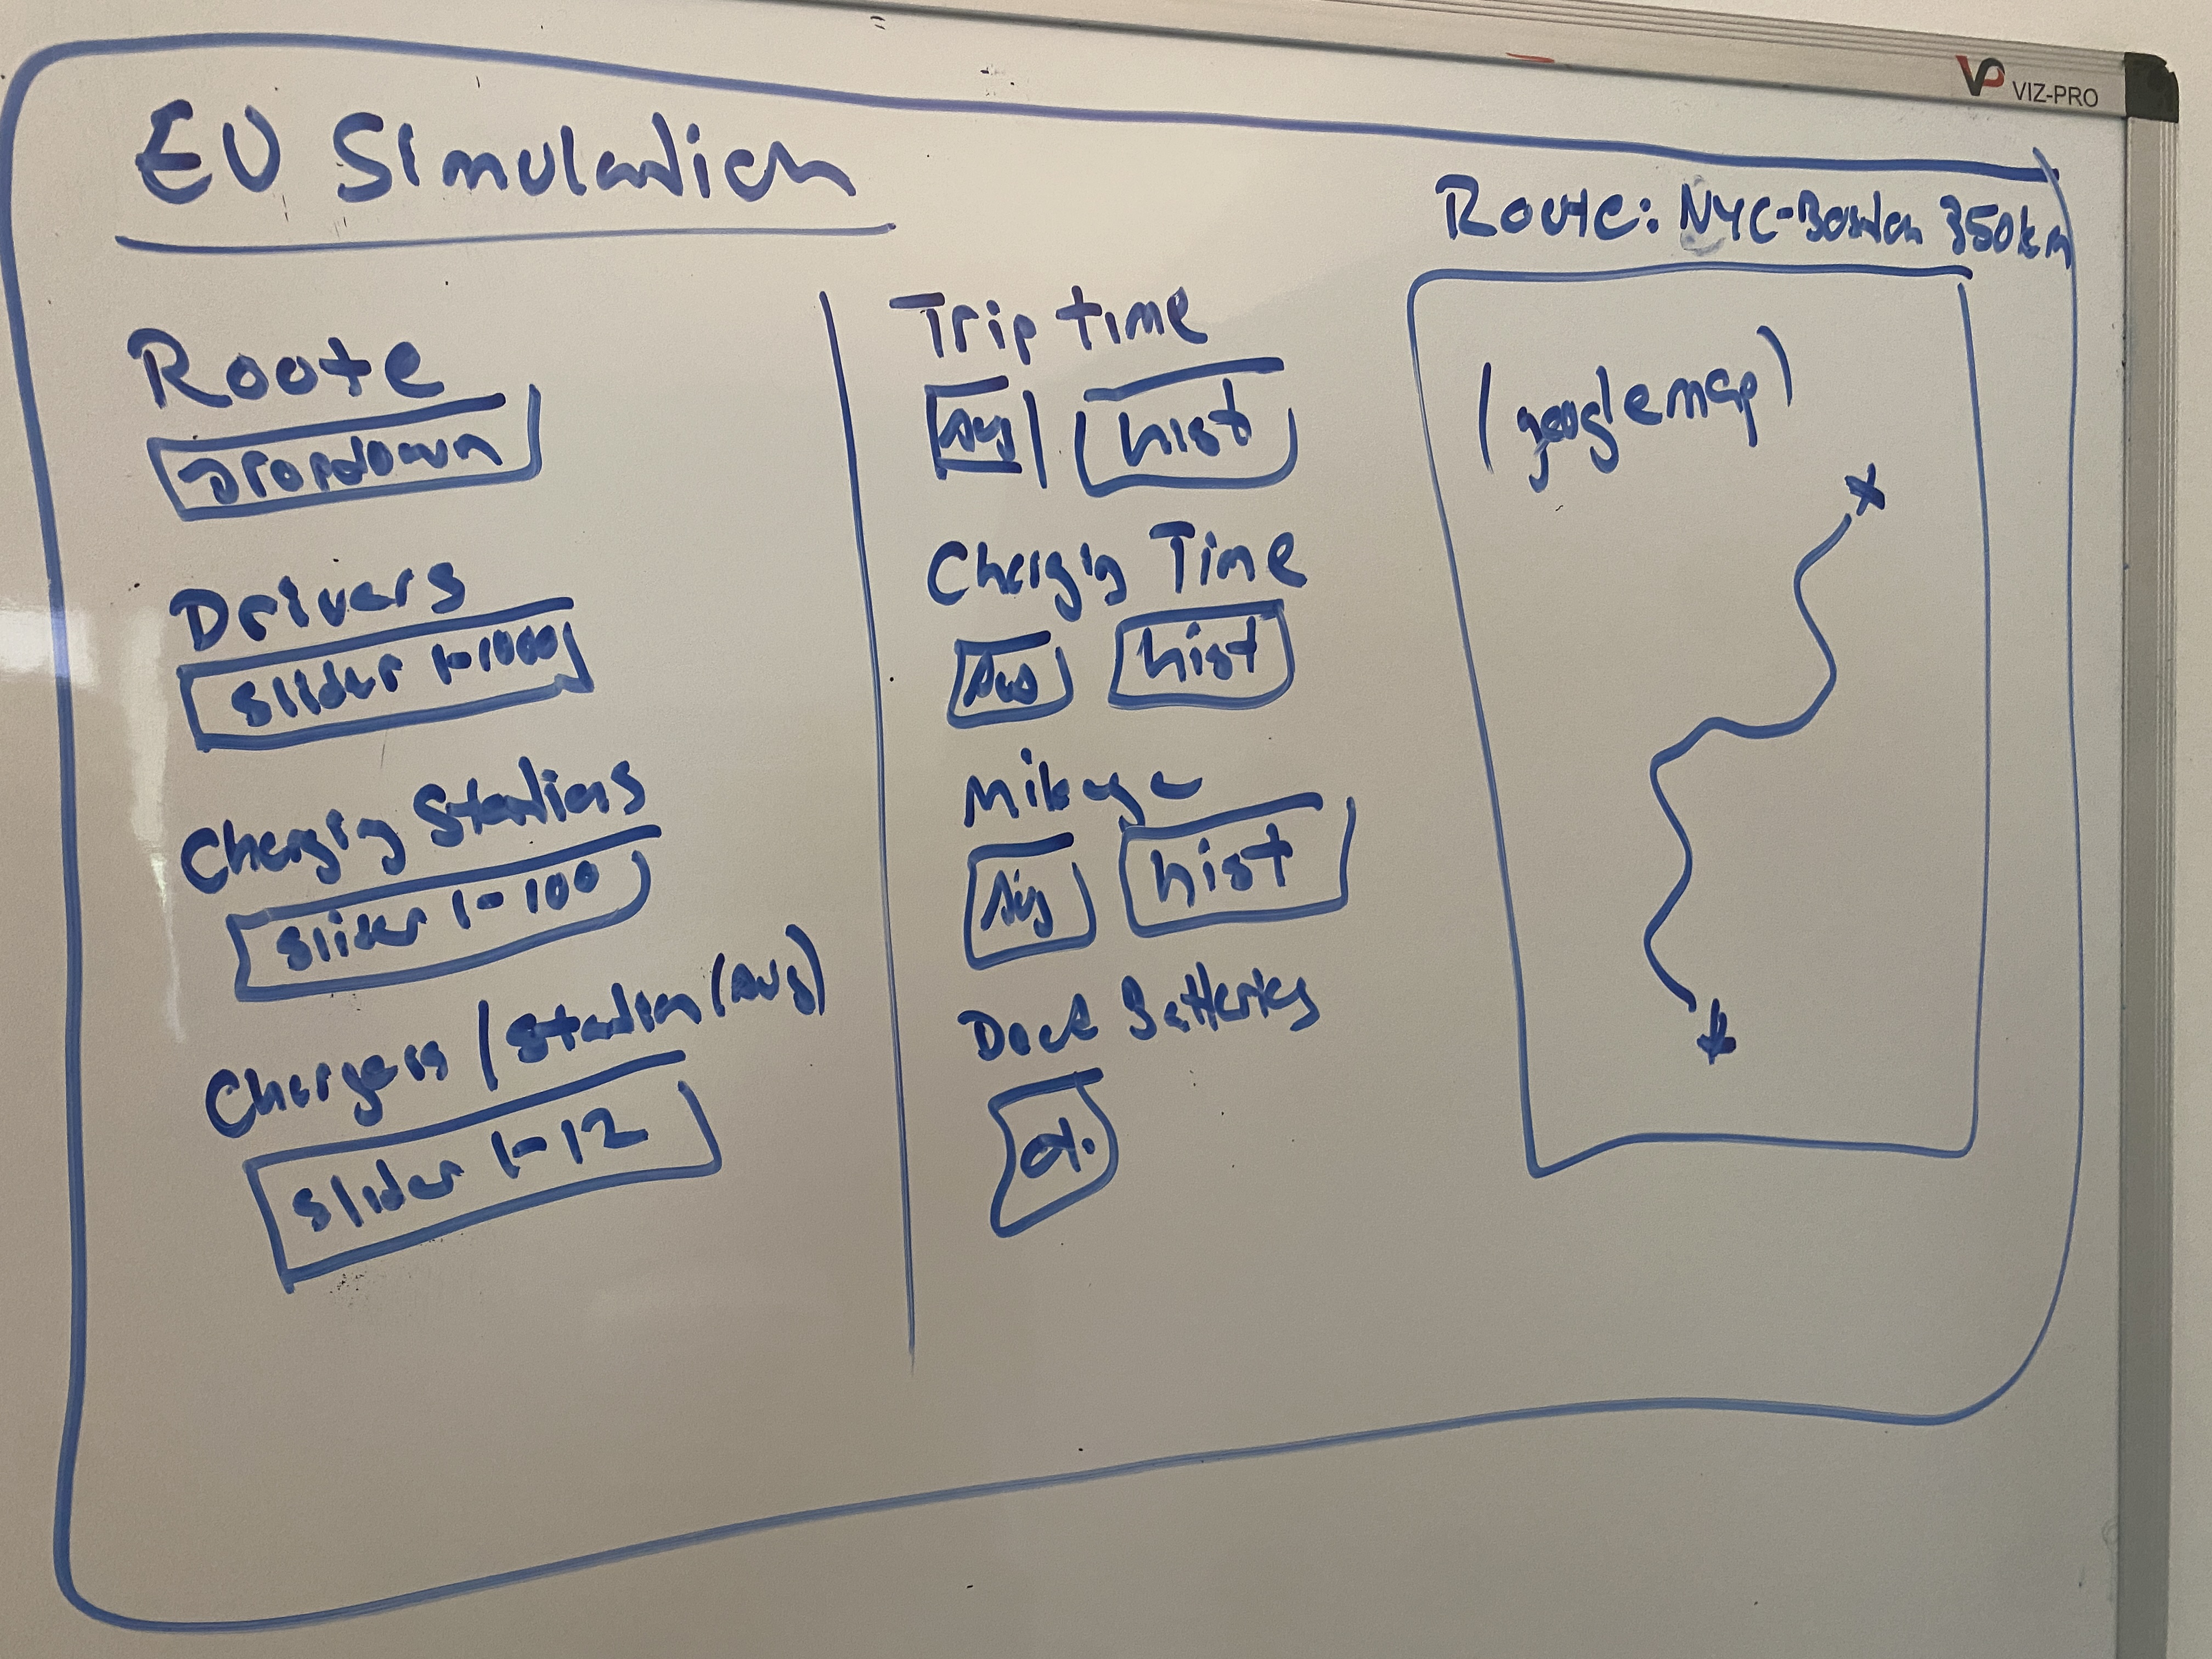 VP VIZ-PRO
EV Simulation
Route
Dropdown
Drivers
Slider 1-1000
Charging Stations
Slider 1-100
Chargers / Station (Avg)
Slider 1-12
Trip time
Avg hist
Charging Time
Avg hist
Mileage
Avg hist
Batteries
Route: NYC-Boston 350km
(google map)